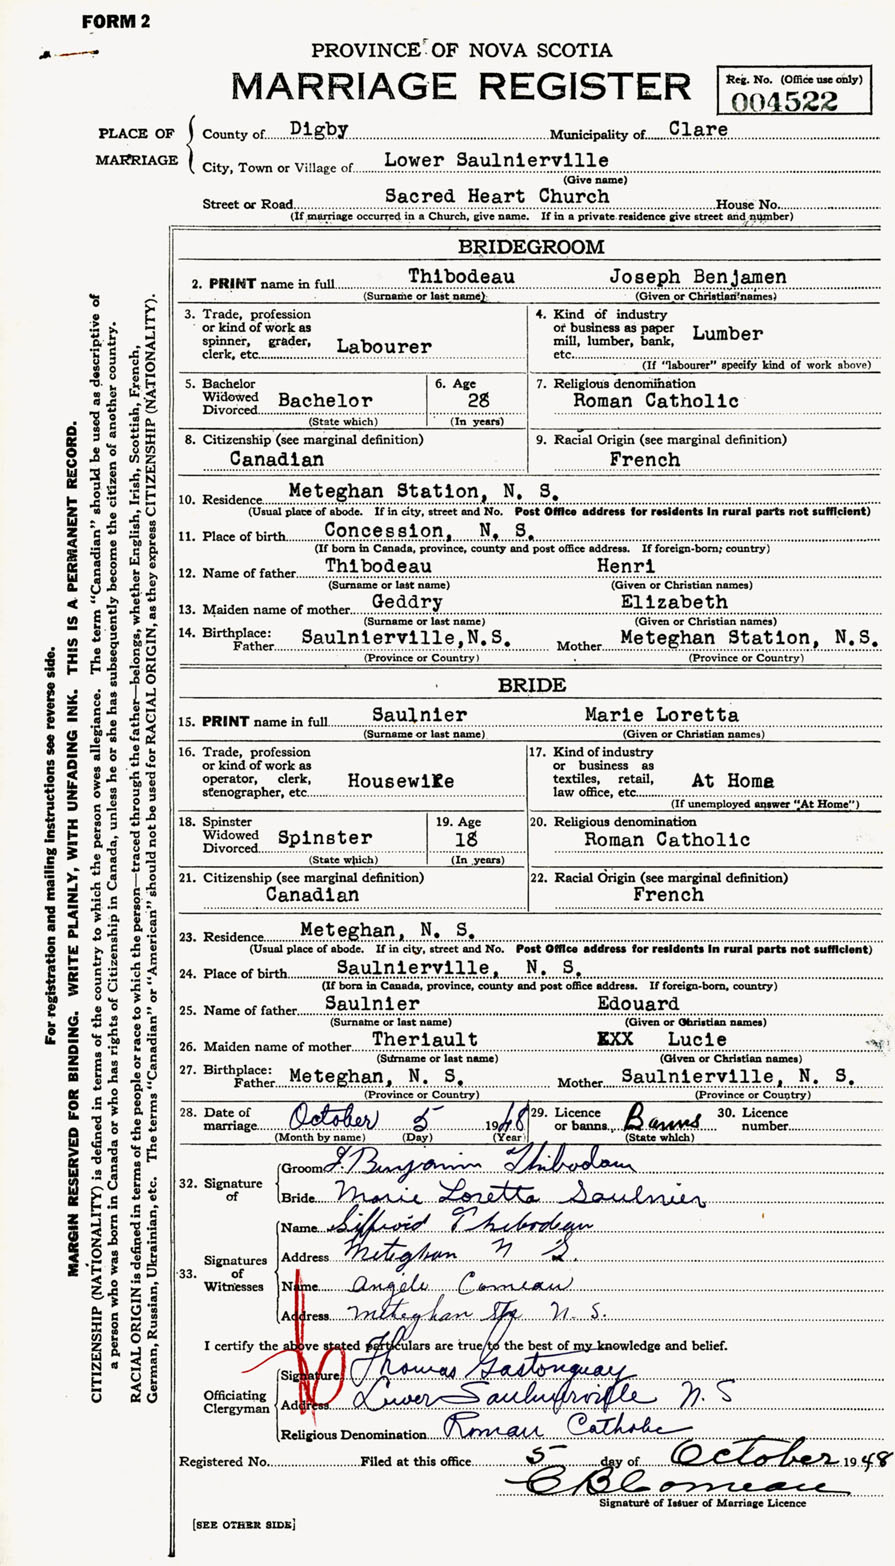 FORM 2
PROVINCE OF NOVA SCOTIA
MARRIAGE REGISTER
Reg. No. (Office use only)
004522
PLACE OF MARRIAGE
County of Digby Municipality of Clare
City, Town or Village of Lower Saulnierville
(Give name)
Street or Road Sacred Heart Church House No.
(If marriage occurred in a Church, give name. If in a private residence give street and number)
BRIDEGROOM
2. PRINT name in full Thibodeau Joseph Benjamen
(Surname or last name) (Given or Christian names)
3. Trade, profession or kind of work as spinner, grader, clerk, etc. Labourer
4. Kind of industry or business as paper mill, lumber, bank, etc. Lumber
(If "labourer" specify kind of work above)
5. Bachelor Widowed Divorced Bachelor
(State which)
6. Age 28
(In years)
7. Religious denomination
Roman Catholic
8. Citizenship (see marginal definition)
Canadian
9. Racial Origin (see marginal definition)
French
10. Residence Meteghan Station, N. S.
(Usual place of abode. If in city, street and No. Post Office address for residents in rural parts not sufficient)
11. Place of birth Concession, N. S.
(If born in Canada, province, county and post office address. If foreign-born; country)
12. Name of father Thibodeau Henri
(Surname or last name) (Given or Christian names)
13. Maiden name of mother Geddry Elizabeth
(Surname or last name) (Given or Christian names)
14. Birthplace: Father Saulnierville, N.S. Mother Meteghan Station, N.S.
(Province or Country) (Province or Country)
BRIDE
15. PRINT name in full Saulnier Marie Loretta
(Surname or last name) (Given or Christian names)
16. Trade, profession or kind of work as operator, clerk, stenographer, etc. Housewife
17. Kind of industry or business as textiles, retail, law office, etc. At Home
(If unemployed answer "At Home")
18. Spinster Widowed Divorced Spinster
(State which)
19. Age 18
(In years)
20. Religious denomination
Roman Catholic
21. Citizenship (see marginal definition)
Canadian
22. Racial Origin (see marginal definition)
French
23. Residence Meteghan, N. S.
(Usual place of abode. If in city, street and No. Post Office address for residents in rural parts not sufficient)
24. Place of birth Saulnierville, N. S.
(If born in Canada, province, county and post office address. If foreign-born, country)
25. Name of father Saulnier Edouard
(Surname or last name) (Given or Christian names)
26. Maiden name of mother Theriault EXX Lucie
(Surname or last name) (Given or Christian names)
27. Birthplace: Father Meteghan, N. S. Mother Saulnierville, N. S.
(Province or Country) (Province or Country)
28. Date of marriage October 5 1948
(Month by name) (Day) (Year)
29. Licence or banns Banns
(State which)
30. Licence number
32. Signature of
Groom J. Benjamin Thibodeau
Bride Marie Loretta Saulnier
33. Signatures of Witnesses
Name Siffroid Thibodeau
Address Meteghan N S.
Name Angèle Comeau
Address Meteghan Sta N. S.
I certify the above stated particulars are true to the best of my knowledge and belief.
Officiating Clergyman
Signature Thomas Gastonguay
Address Lower Saulnierville N. S
Religious Denomination Roman Catholic
Registered No. Filed at this office 5 day of October 1948
C B Comeau
Signature of Issuer of Marriage Licence
[SEE OTHER SIDE]
For registration and mailing instructions see reverse side.
MARGIN RESERVED FOR BINDING. WRITE PLAINLY, WITH UNFADING INK. THIS IS A PERMANENT RECORD.
CITIZENSHIP (NATIONALITY) is defined in terms of the country to which the person owes allegiance. The term "Canadian" should be used as descriptive of
a person who was born in Canada or who has rights of Citizenship in Canada, unless he or she has subsequently become the citizen of another country.
RACIAL ORIGIN is defined in terms of the people or race to which the person—traced through the father—belongs, whether English, Irish, Scottish, French,
German, Russian, Ukrainian, etc. The terms "Canadian" or "American" should not be used for RACIAL ORIGIN, as they express CITIZENSHIP (NATIONALITY).